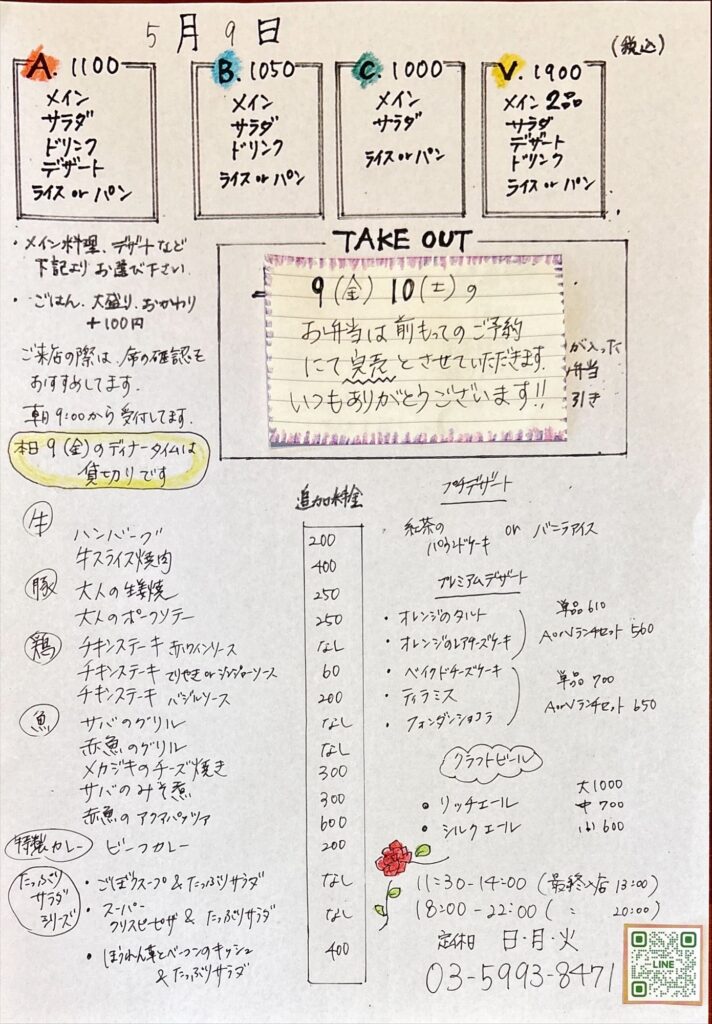 5月9日
(税込)
A. 1100
メイン
サラダ
ドリンク
デザート
ライス or パン
B. 1050
メイン
サラダ
ドリンク
ライス or パン
C. 1000
メイン
サラダ
ライス or パン
V. 1900
メイン 2品
サラダ
デザート
ドリンク
ライス or パン
・メイン料理、デザートなど
下記より お選び下さい
・ごはん、大盛り、おかわり
+100円
ご来店の際は、席の確認を
おすすめしてます.
朝9:00から受付してます.
本日9(金)のディナータイムは
貸切りです
TAKE OUT
9(金) 10(土)の
お弁当は前もってのご予約
にて完売とさせていただきます.
いつもありがとうございます!!
が入った
弁当
引き
追加料金
牛
ハンバーグ 200
牛スライス焼肉 400
豚
大人の生姜焼 250
大人のポークソテー 250
鶏
チキンステーキ 赤ワインソース なし
チキンステーキ てりやき or ジンジャーソース 60
チキンステーキ バジルソース 200
魚
サバのグリル なし
赤魚のグリル なし
メカジキのチーズ焼き 300
サバのみそ煮 300
赤魚のアクアパッツァ 600
特製カレー ビーフカレー 200
たっぷり
サラダ
シリーズ
・ごぼうスープ & たっぷりサラダ なし
・スーパー
クリスピーピザ & たっぷりサラダ なし
・ほうれん草とベーコンのキッシュ
& たっぷりサラダ 400
プチデザート
紅茶の
パウンドケーキ or バニラアイス
プレミアムデザート
・オレンジのタルト
・オレンジのレアチーズケーキ
単品 610
AorVランチセット 560
・ベイクドチーズケーキ
・ティラミス
・フォンダンショコラ
単品 700
AorVランチセット 650
クラフトビール
・リッチエール
・シルクエール
大1000
中700
小600
11:30-14:00 (最終入店 13:00)
18:00-22:00 ( 〃 20:00)
定休日 日・月・火
03-5993-8471
LINE